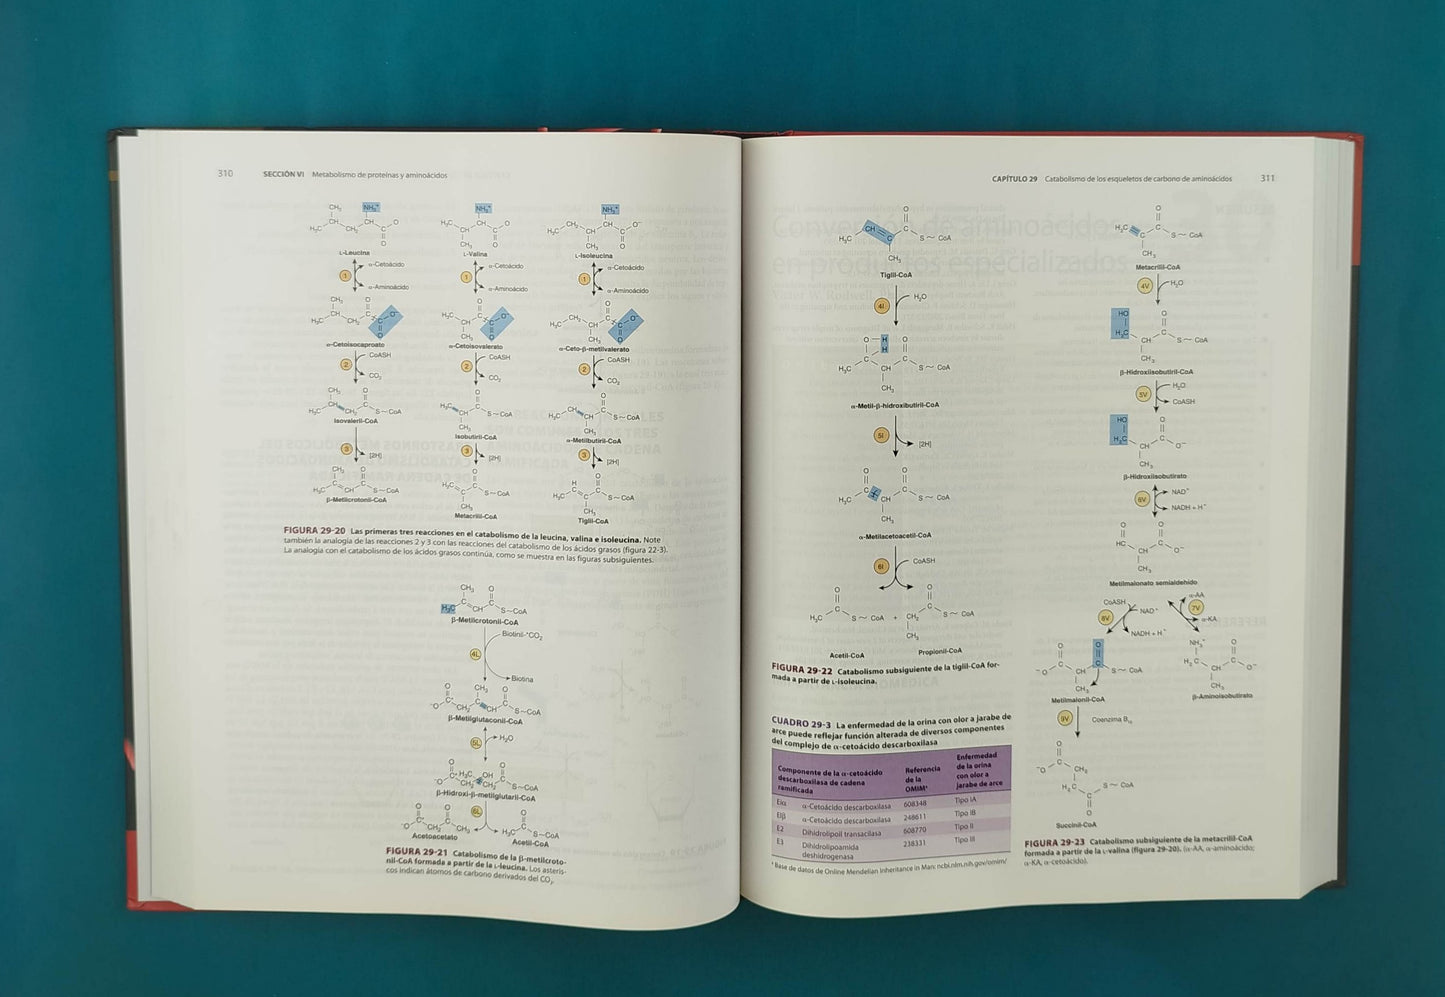 310 SECCIÓN VI Metabolismo de proteínas y aminoácidos
CH₃ NH₃⁺
H₃C CH CH₂ CH C O⁻ O
L-Leucina
NH₃⁺
H₃C CH CH C O⁻ CH₃ O
L-Valina
NH₃⁺
H₃C CH₂ CH CH C O⁻ CH₃ O
L-Isoleucina
1 α-Cetoácido
α-Aminoácido
1 α-Cetoácido
α-Aminoácido
1 α-Cetoácido
α-Aminoácido
α-Cetoisocaproato
α-Cetoisovalerato
α-Ceto-β-metilvalerato
2 CoASH
CO₂
2 CoASH
CO₂
2 CoASH
CO₂
Isovaleril-CoA
Isobutiril-CoA
α-Metilbutiril-CoA
3 [2H]
3 [2H]
3 [2H]
β-Metilcrotonil-CoA
Metacrilil-CoA
Tiglil-CoA
FIGURA 29-20 Las primeras tres reacciones en el catabolismo de la leucina, valina e isoleucina. Note
también la analogía de las reacciones 2 y 3 con las reacciones del catabolismo de los ácidos grasos (figura 22-3).
La analogía con el catabolismo de los ácidos grasos continúa, como se muestra en las figuras subsiguientes.
CH₃ O
H₃C C CH C S~CoA
β-Metilcrotonil-CoA
Biotinil-*CO₂
4L
Biotina
β-Metilglutaconil-CoA
5L H₂O
β-Hidroxi-β-metilglutaril-CoA
6L
Acetoacetato
Acetil-CoA
FIGURA 29-21 Catabolismo de la β-metilcroto-
nil-CoA formada a partir de la L-leucina. Los asteris-
cos indican átomos de carbono derivados del CO₂.
CAPÍTULO 29 Catabolismo de los esqueletos de carbono de aminoácidos 311
H₃C CH C C S~CoA CH₃ O
Tiglil-CoA
4I H₂O
α-Metil-β-hidroxibutiril-CoA
5I [2H]
α-Metilacetoacetil-CoA
6I CoASH
H₃C C S~CoA + CH₂ C S~CoA
CH₃
Acetil-CoA
Propionil-CoA
FIGURA 29-22 Catabolismo subsiguiente de la tiglil-CoA for-
mada a partir de L-isoleucina.
CUADRO 29-3 La enfermedad de la orina con olor a jarabe de
arce puede reflejar función alterada de diversos componentes
del complejo de α-cetoácido descarboxilasa
Componente de la α-cetoácido
descarboxilasa de cadena
ramificada
Referencia
de la
OMIM*
Enfermedad
de la orina
con olor a
jarabe de arce
EIα α-Cetoácido descarboxilasa 608348 Tipo IA
EIβ α-Cetoácido descarboxilasa 248611 Tipo IB
E2 Dihidrolipoil transacilasa 608770 Tipo II
E3 Dihidrolipoamida 238331 Tipo III
deshidrogenasa
* Base de datos de Online Mendelian Inheritance in Man: ncbi.nlm.nih.gov/omim/
H₂C C C S~CoA CH₃ O
Metacrilil-CoA
4V H₂O
β-Hidroxiisobutiril-CoA
5V H₂O
CoASH
β-Hidroxiisobutirato
6V NAD⁺
NADH + H⁺
Metilmalonato semialdehído
CoASH
8V NAD⁺
NADH + H⁺
α-AA
7V
α-KA
Metilmalonil-CoA
β-Aminoisobutirato
9V Coenzima B₁₂
Succinil-CoA
FIGURA 29-23 Catabolismo subsiguiente de la metacrilil-CoA
formada a partir de la L-valina (figura 29-20). (α-AA, α-aminoácido;
α-KA, α-cetoácido).